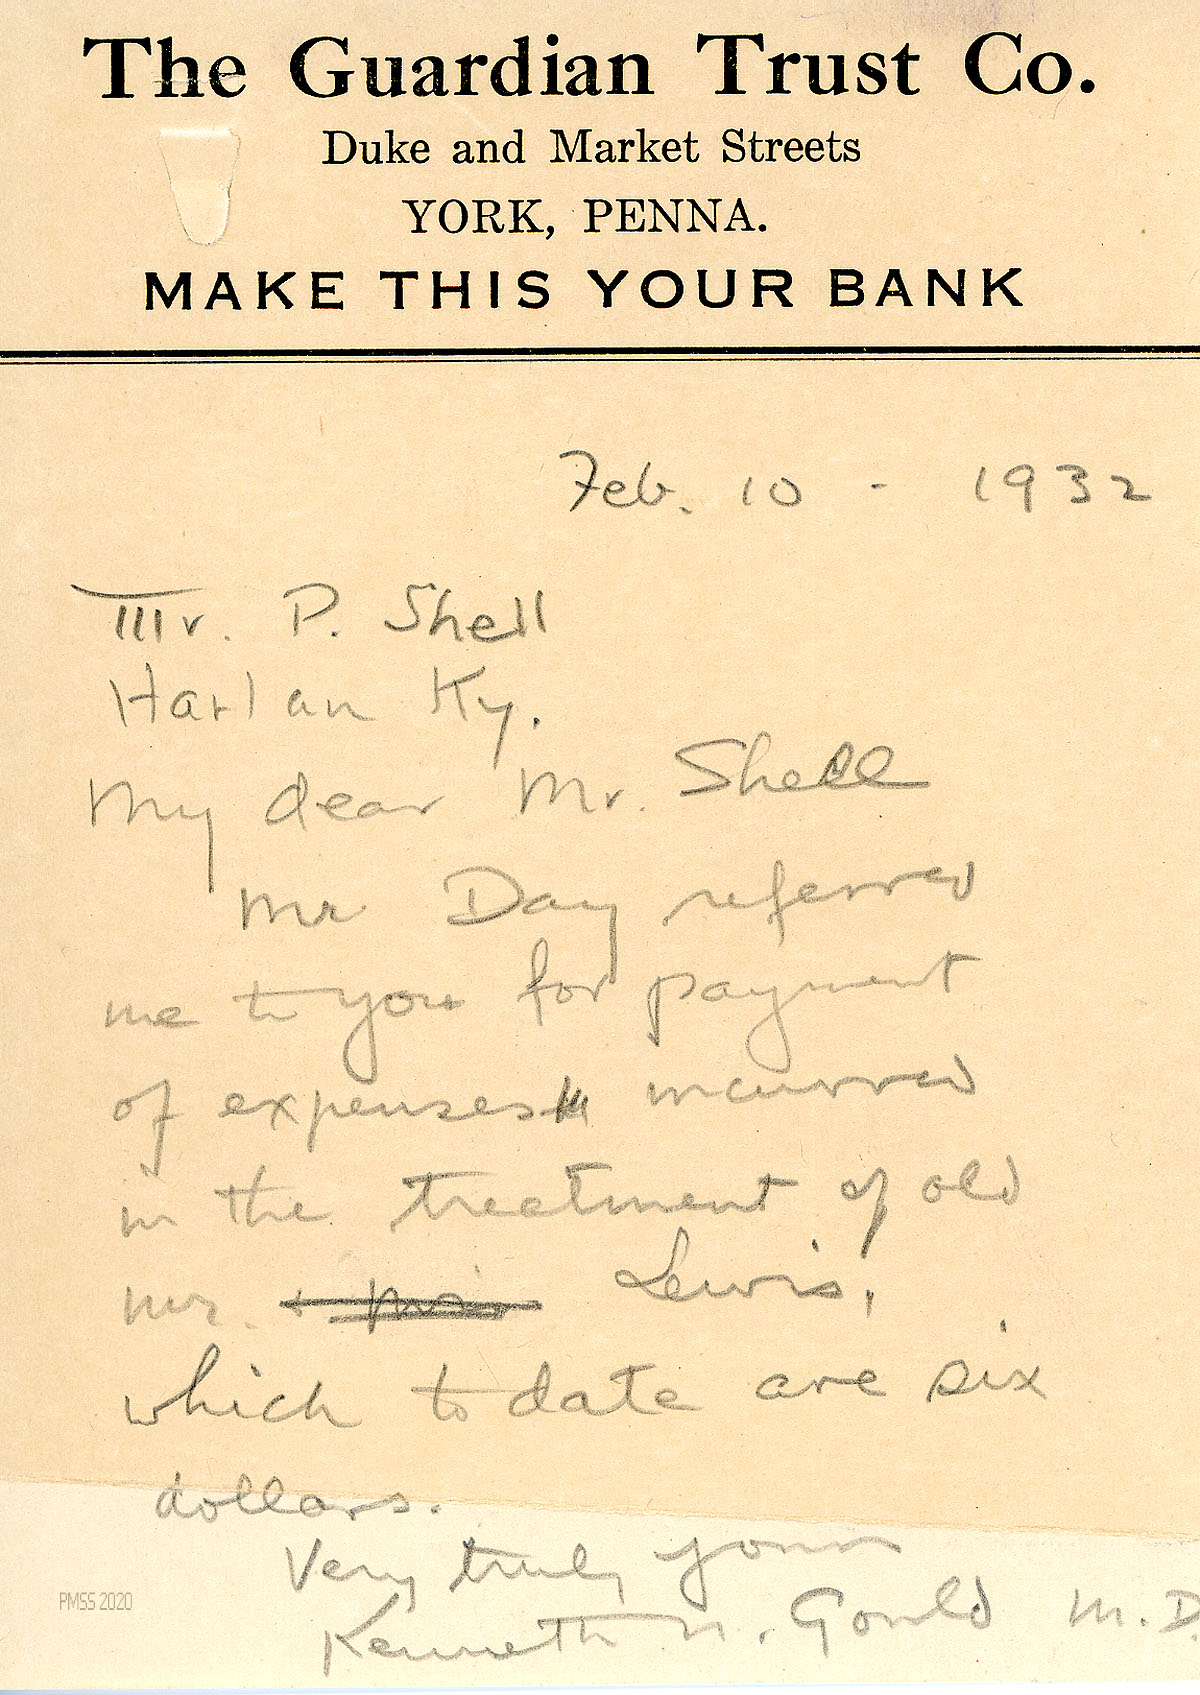 The Guardian Trust Co.
Duke and Market Streets
YORK, PENNA.
MAKE THIS YOUR BANK
Feb. 10 - 1932
Mr. P. Shell
Harlan Ky.
My dear Mr. Shell
Mr Day referred
me to you for payment
of expenses incurred
in the treatment of old
mr. + Mrs Lewis,
which to date are six
dollars.
Very truly yours
Kenneth N. Gould M.D.
PMSS 2020